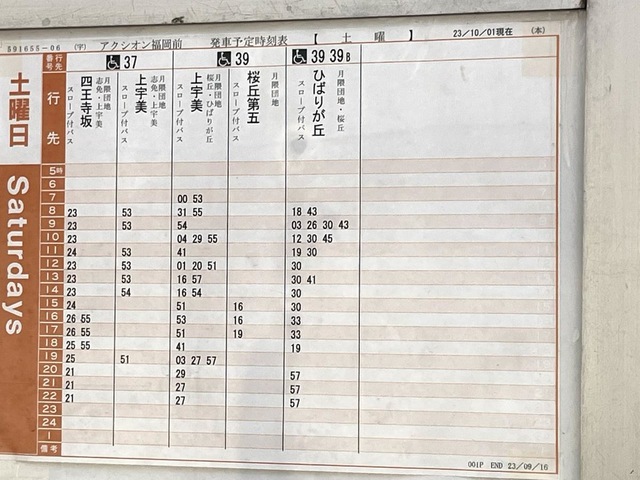 591655-06 (宇) アクシオン福岡前 発車予定時刻表 【 土 曜 】 23/10/01現在 (本)
土曜日 Saturdays
行先番号 37 39 39 39B
行先
月隈団地 志免・上宇美 四王寺坂 スロープ付バス
月隈団地 志免・上宇美 上宇美 スロープ付バス
月隈団地 桜丘・ひばりが丘 上宇美 スロープ付バス
月隈団地 桜丘第五 スロープ付バス
月隈団地・桜丘 ひばりが丘 スロープ付バス
5時
6
7 00 53
8 23 53 31 55 18 43
9 23 53 54 03 26 30 43
10 23 53 04 29 55 12 30 45
11 24 53 41 19 30
12 23 53 01 20 51 30
13 23 53 16 57 30 41
14 23 54 16 54 30
15 24 51 16 30
16 26 55 53 16 33
17 26 55 51 19 33
18 25 55 41 19
19 25 51 03 27 57
20 21 29 57
21 21 27 57
22 21 27 57
23
24
1
備考
001P END 23/09/16